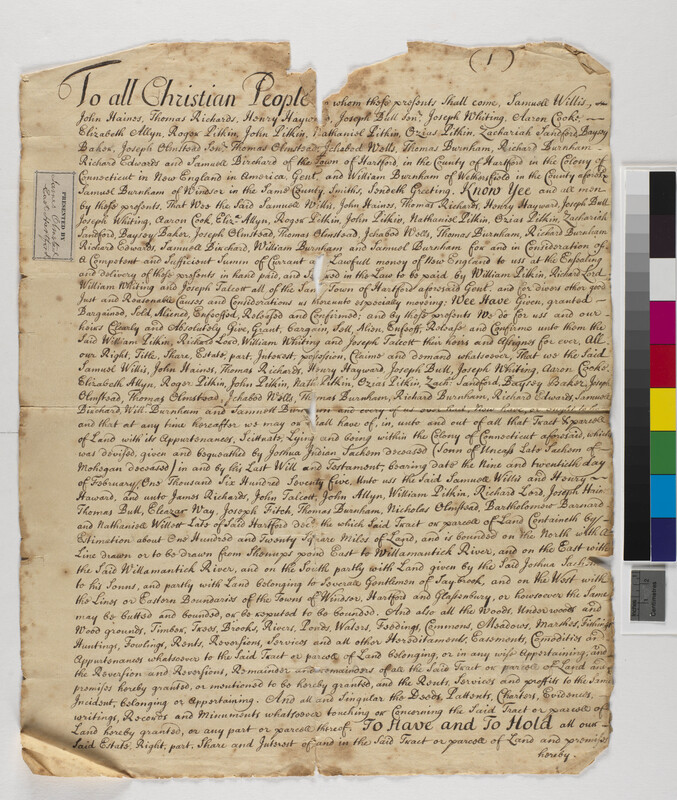 ( 1 )
To all Christian People whom these presents Shall come, Samuell Willis,
John Haines, Thomas Richards, Henry Hayward, Joseph Bull Sonr. Joseph Whiting, Aaron Cooke,
Elizabeth Allyn, Roger Pitkin, John Pitkin, Nathaniel Pitkin, Ozias Pitkin, Zachariah Sandford, Baysey
Baker, Joseph Olmstead, Thomas Olmstead, Jehabod Wells, Thomas Burnham, Richard Burnham
Richard Edwards and Samuell Birchard of the Town of Hartford, in the County of Hartford in the Colony of
Connecticut in New England in America, Gent, and William Burnham of Wethersfield in the County aforesd
Samuel Burnham of Windsor in the Same County, Smiths, Sendeth Greeting. Know Yee and all men
by these presents, That Wee the Said Samuell Willis, John Haines, Thomas Richards, Henry Hayward, Joseph Bull
Joseph Whiting, Aaron Cook, Eliz: Allyn, Roger Pitkin, John Pitkin, Nathaniel Pitkin, Ozias Pitkin, Zachariah
Sandford, Baysey Baker, Joseph Olmstead, Thomas Olmstead, Jehabod Wells, Thomas Burnham, Richard Burnham
Richard Edwards, Samuell Birchard, William Burnham and Samuel Burnham for and in Consideration of
A Competent and Sufficient Summ of Currant Lawfull money of New England to us at the Ensealing
and delivery of these presents in hand paid, and in the Law to be paid by William Pitkin, Richard Lord
William Whiting and Joseph Talcott all of the Town of Hartford aforesaid Gent. and for divers other good
Just and Reasonable Causes and Considerations us thereunto especially moving; Wee Have Given, granted
Bargained, Sold, Aliened, Enfeoffed, Released and Confirmed; and by these presents We do for us and our
heirs Clearly and Absolutely Give, Grant, bargain, Sell, Alien, Enfeoff, Release and Confirme unto them the
Said William Pitkin, Richard Lord, William Whiting and Joseph Talcott their heirs and Assigns for ever, All
our Right, Title, Share, Estate, part, Interest, possession, Claime and demand whatsoever, That we the Said
Samuel Willis, John Haines, Thomas Richards, Henry Hayward, Joseph Bull, Joseph Whiting, Aaron Cooke
Elizabeth Allyn, Roger Pitkin, John Pitkin, Nath: Pitkin, Ozias Pitkin, Zach: Sandford, Baysey Baker, Joseph
Olmstead, Thomas Olmstead, Jehabod Wells, Thomas Burnham, Richard Burnham, Richard Edwards, Samuell
Birchard, Will: Burnham and Samuell Burnham and every of us ever had, Now have, or ought to have
and that at any time hereafter we may or shall have of, in, unto and out of all that Tract & parcele
of Land with its Appurtenances, Scittuate, Lying and being within the Colony of Connecticut aforesaid, which
was devised, given and bequeathed by Joshua Indian Sachem deceased (Sonn of Uncass Late Sachem of
Mohegan deceased) in and by his Last Will and Testament, bearing date the Nine and twentieth day
of February, One Thousand Six Hundred Seventy five, Unto us the Said Samuell Willis and Henry
Haward, and unto James Richards, John Talcott, John Allyn, William Pitkin, Richard Lord, Joseph
Thomas Bull, Eleazer Way, Joseph Fitch, Thomas Burnham, Nicholas Olmstead Bartholomew Barnard
and Nathaniell Willett Late of Said Hartford decd: the which Said Tract or parcele of Land Containeth by
Estimation about One Hundred and Twenty Square Miles of Land, and is bounded on the North with A
Line drawn or to be drawn from Shenups pond East to Willamantick River, and on the East with
the Said Willamantick River, and on the South partly with Land given by the Said Joshua Sachem
to his Sonns, and partly with Land belonging to Severall Gentlemen of Saybrook, and on the West with
the Lines or Eastern Boundaries of the Towns of Windsor, Hartford and Glassenbury, or howsoever the Same
may be butted and bounded, or be reputed to be bounded. And also all the Woods, Underwoods and
Wood grounds, Timber, Trees, Brooks, Rivers, Ponds, Waters, Feedings, Commons, Meadows, Marshes, Fishings
Huntings, Fowlings, Rents, Reversions, Services and all other Hereditaments, Easments, Comodities and
Appurtenances whatsoever to the Said Tract or parcele of Land belonging, or in any wise Appertaining, and
the Reversion and Reversions, Remainder and remainders of all the Said Tract or parcele of Land and
premises hereby granted, or mentioned to be hereby granted, and the Rents, Services and proffits to the Same
Incident, belonging or Appertaining. And all and Singular the Deeds, Pattents, Charters, Evidences,
writings, Records and Minuments whatsoever touching or Concerning the Said Tract or parcele of
Land hereby granted, or any part or parcele thereof. To Have and To Hold all our
Said Estate, Right, part, Share and Interest of and in the Said Tract or parcele of Land and premises
hereby.
PRESENTED BY
Inches
Centimetres